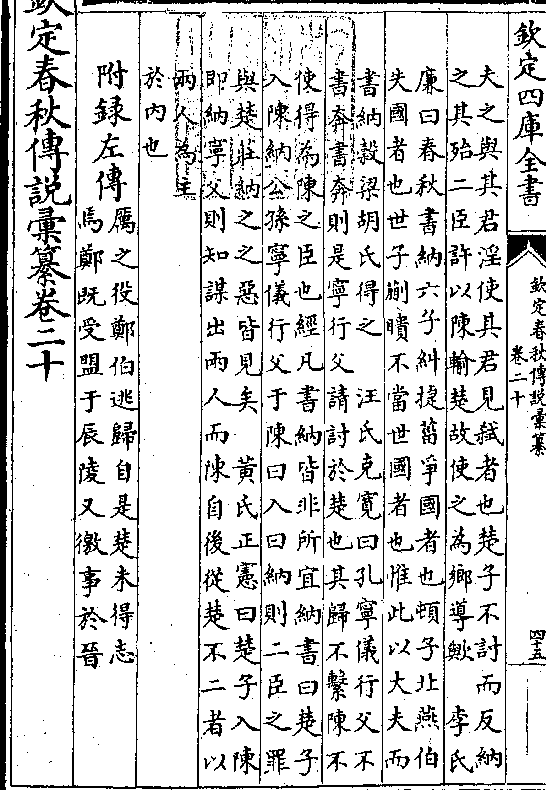 欽定四庫全書
欽定春秋傳說彙纂
卷二十
四十五
夫之與其君淫使其君見弑者也楚子不討而反納
之其殆二臣許以陳輸楚故使之為鄉導歟　李氏
廉曰春秋書納六子糾捷菑爭國者也頓子北燕伯
失國者也世子蒯聵不當世國者也惟此以大夫而
書納穀梁胡氏得之　汪氏克寬曰孔寧儀行父不
書奔書奔則是寧行父請討於楚也其歸不繫陳不
使得為陳之臣也經凡書納皆非所宜納書曰楚子
入陳納公孫寧儀行父于陳曰入曰納則二臣之罪
與楚莊納之之惡皆見矣　黃氏正憲曰楚子入陳
即納寧父則知謀出兩人而陳自後從楚不二者以
兩人為主
於內也
附錄左傳
厲之役鄭伯逃歸自是楚未得志
焉鄭既受盟于辰陵又徼事於晉
欽定春秋傳說彙纂卷二十